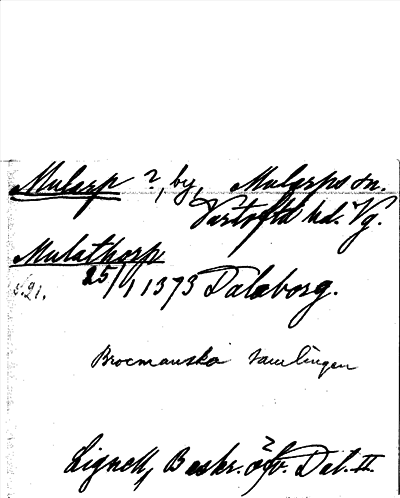 Mularp ?, by, Mularps sn.
Vartofta hd. Vg.
Mulathorp
s. 21. 25/1 1373 Dalaborg.
Brocmanska samlingen
Lignell, Beskr. öfv. Dal. II.